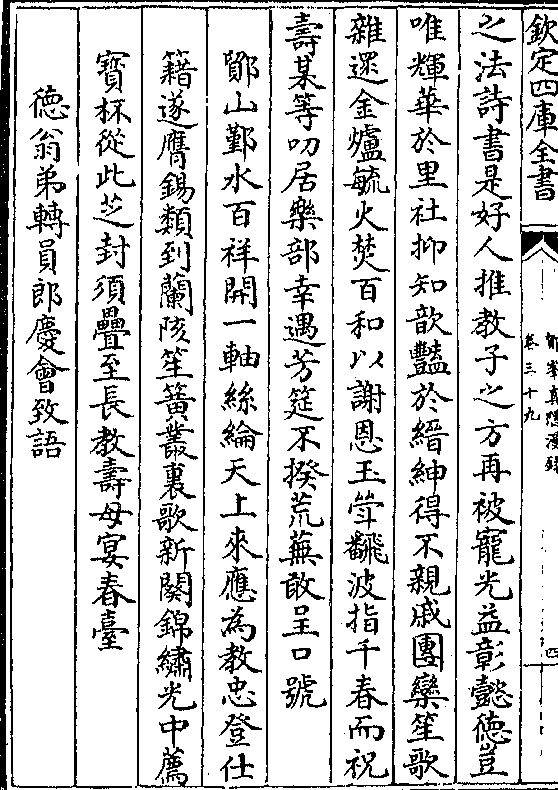 欽定四庫全書
卷三十九
之法詩書是好人推教子之方再被寵光益彰懿徳豈
唯輝華於里社抑知歆豔於縉紳得不親戚團欒笙歌
雜遝金爐毓火焚百和以謝恩玉斝飜波指千春而祝
壽某等叨居樂部幸遇芳筵不揆荒蕪敢呈口號
鄮山鄞水百祥開一軸絲綸天上來應為教忠登仕
籍遂膺錫類到蘭陔笙簧叢裏歌新闋錦繡光中薦
寳杯從此芝封須疊至長教壽母宴春臺
徳翁弟轉員郎慶會致語